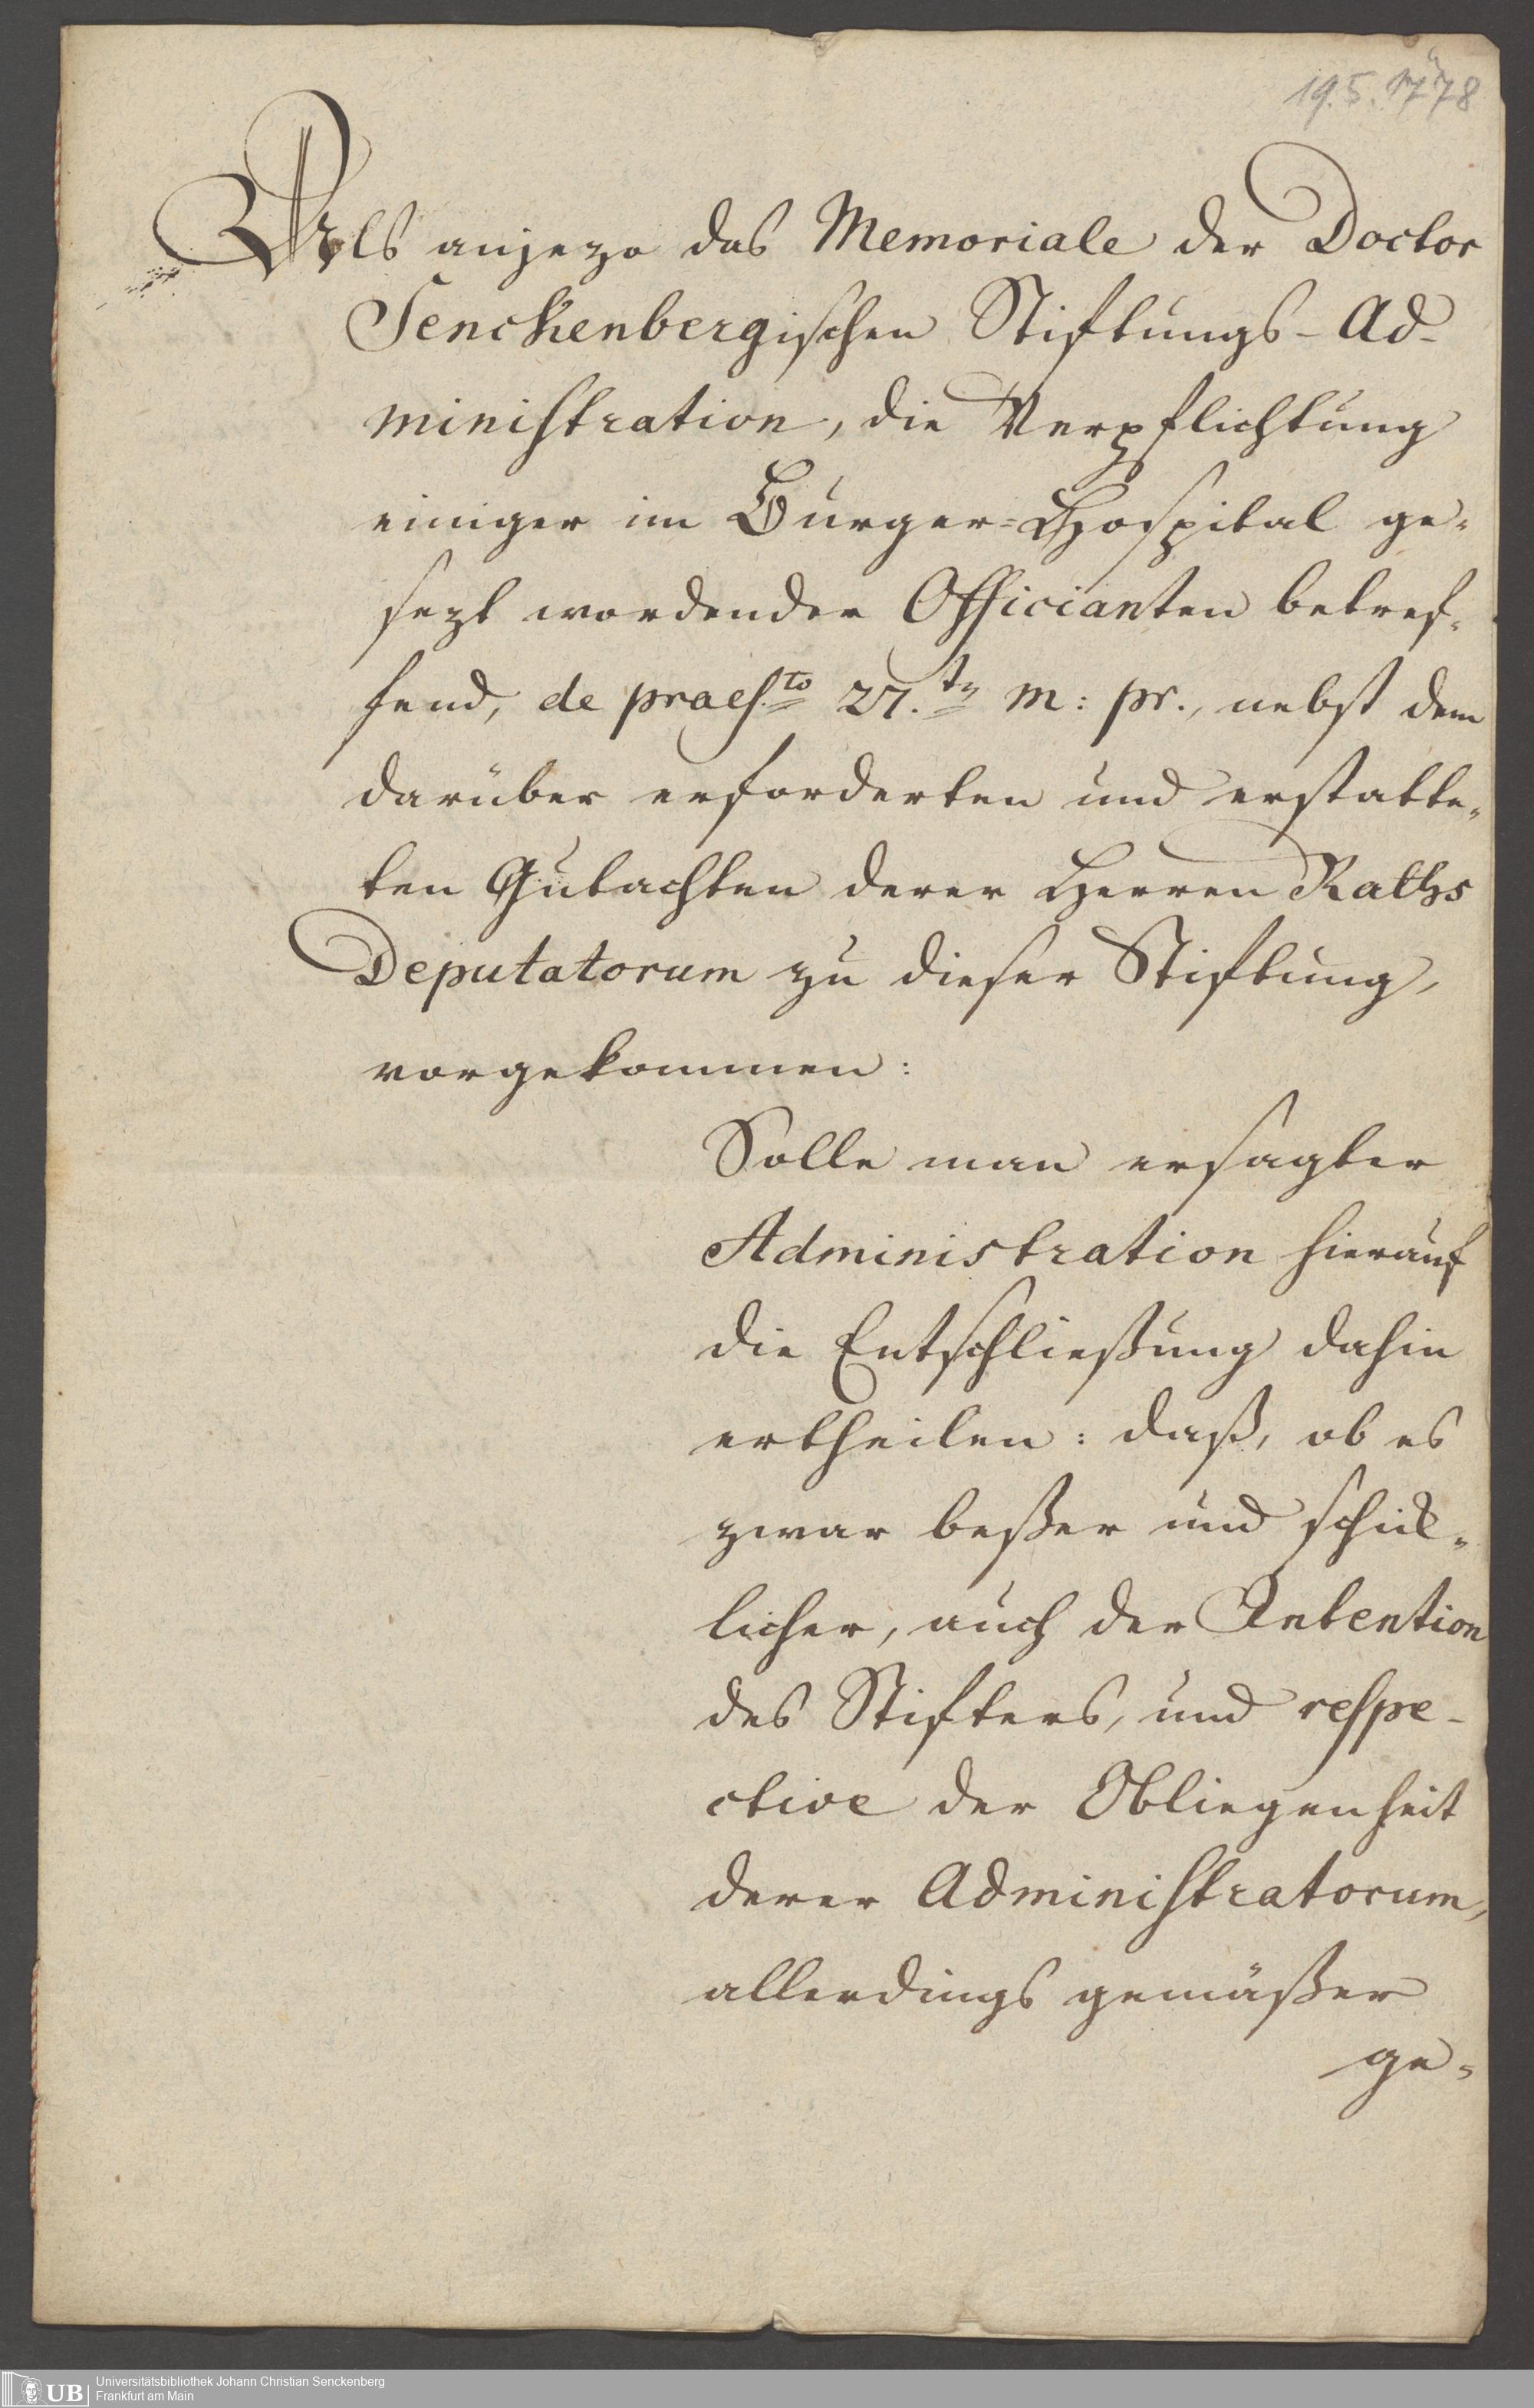 19.5.1778
Als anjezo das Memoriale der Doctor
Senckenbergischen Stiftungs-Ad-
ministration, die Verpflichtung
einiger im Burger=Hospital ge-
sezt wordender Officianten betref-
fend, de praes.to 27.ten m: pr., nebst dem
darüber erforderten und erstatte-
ten Gutachten derer Herren Raths
Deputatorum zu dieser Stiftung,
vorgekommen:
Solle man ersagter
Administration hierauf
die Entschließung dahin
ertheilen: daß, ob es
zwar beßer und schik-
licher, auch der Intention
des Stifters, und respe-
ctive der Obliegenheit
derer Administratorum,
allerdings gemäßer
ge-
UB Universitätsbibliothek Johann Christian Senckenberg
Frankfurt am Main